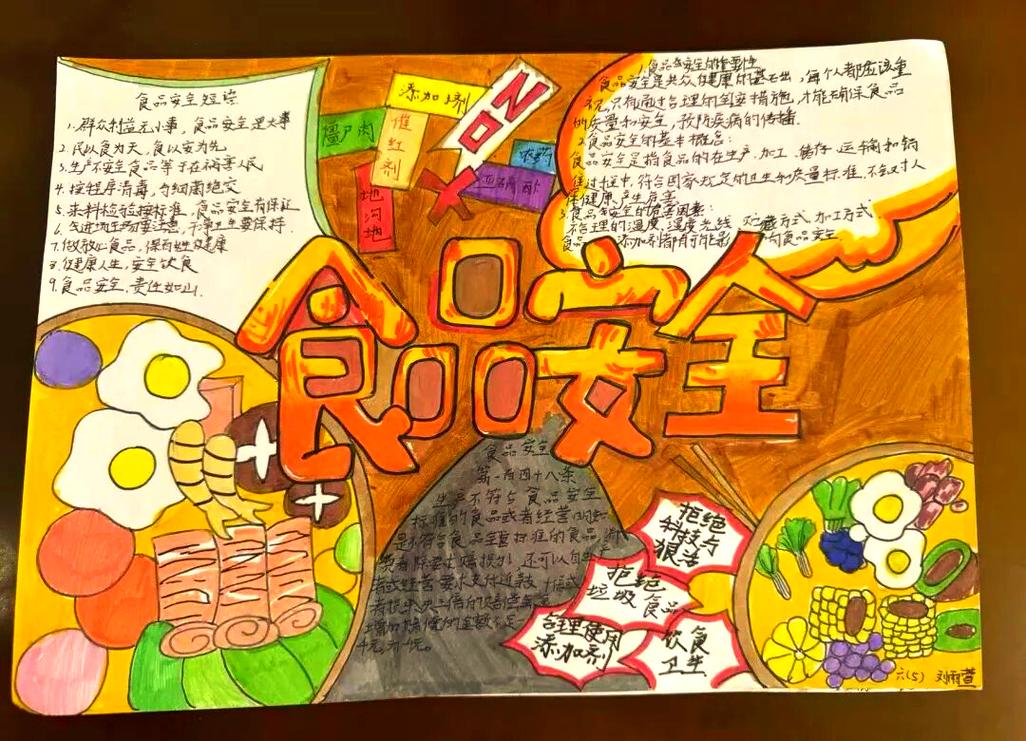 食品安全短语
1.群众利益无小事，食品安全是大事
2.民以食为天，食以安为先
3.生产不安全食品等于在祸害人民
4.按程序消毒，与细菌绝交
5.来料检验按标准，食品安全有保证
6.生进场生物要注意，干净卫生要保持.
7.做放心食品，保百姓健康
8.健康人生，安全饮食
9.食品安全，责任如山.
添加剂
僵尸肉
催红剂
地沟油
NO
农药
亚硝酸
1.食品安全的重要性
食品安全是公众健康的基石出，每个人都应该重
视，只有通过合理的安全措施，才能确保食品
的质量和安全，预防疾病的传播.
2.食品安全的基本概念：
食品安全是指食品的在生产、加工、储存、运输和销
售过程中，符合国家规定的卫生和质量标准，不会对人
体健康产生危害.
3.食品安全的危害因素：
不合理的温度、湿度光线、贮藏方式、加工方式、
食品添加剂都有可能影响食品安全.
食品安全
食品安全
第一百四十八条
生产不符合食品安全
标准的食品或者经营明知
是不符合食品安全标准的食品，消
费者除要求赔偿损失外，还可以
拒绝
科技与
狠活
拒绝
垃圾食品
合理使用
添加剂
饮食
卫生
六(5) 刘雨萱